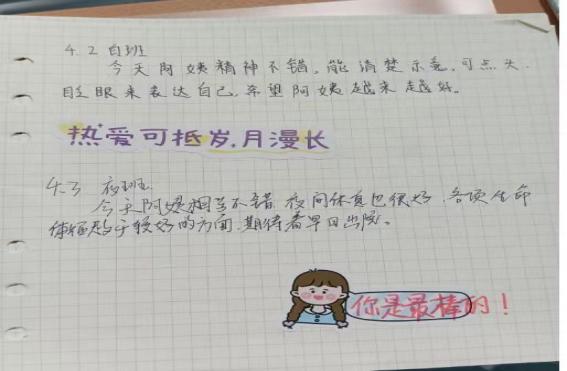 4.2 白班
今天阿姨精神不错,能清楚示意,可点头、
眨眼来表达自己,希望阿姨越来越好。
热爱可抵岁月漫长
4.3 夜班
今天阿姨相当不错,夜间休息也很好,各项生命
体征趋于较好的方面,期待着早日出院。
你是最棒的!